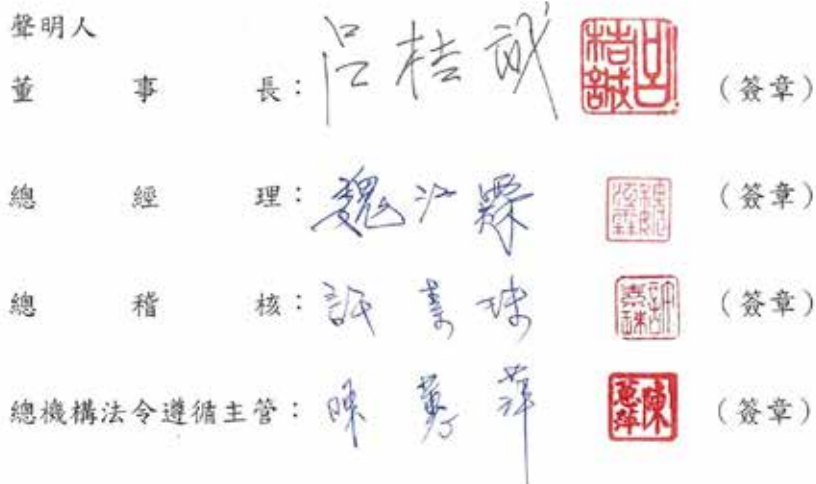 聲明人
董事長：呂桔誠 呂桔誠 （簽章）
總經理：魏江霖 魏江霖 （簽章）
總稽核：許素珠 許素珠 （簽章）
總機構法令遵循主管：陳 萍 陳 萍 （簽章）